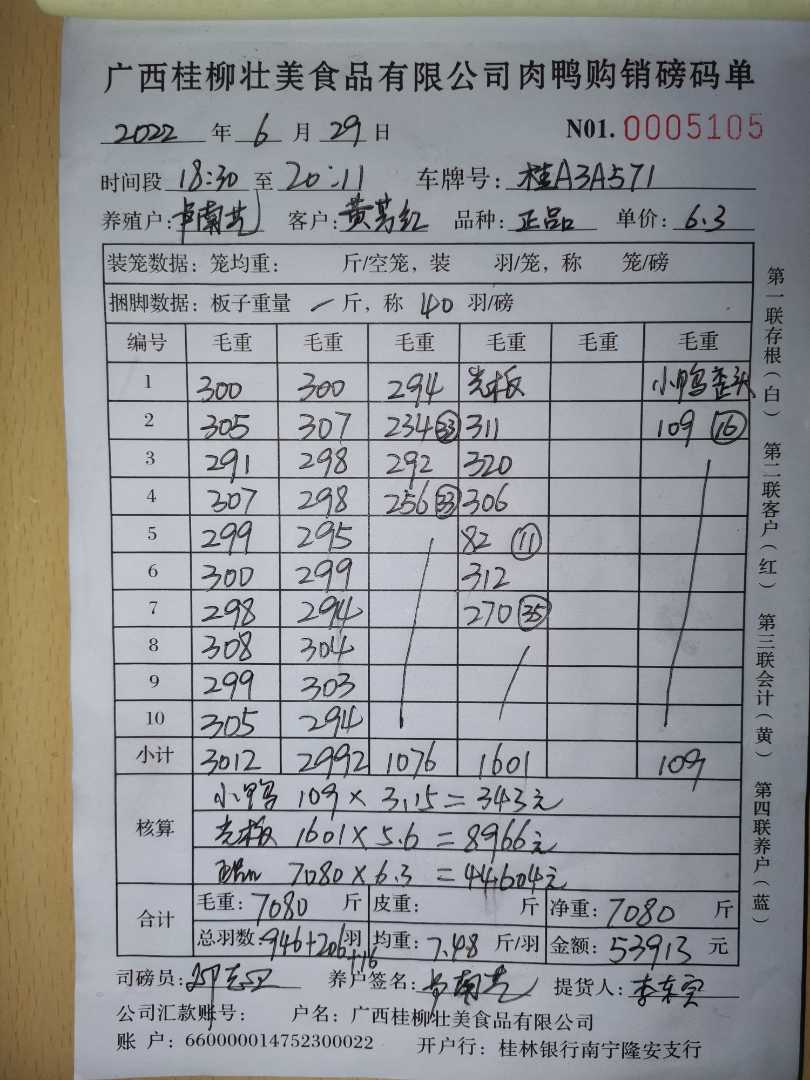 广西桂柳壮美食品有限公司肉鸭购销磅码单
2022 年 6 月 29 日 N01. 0005105
时间段 18:30 至 20:11 车牌号: 桂A3A571
养殖户: 卢南芝 客户: 黄芳红 品种: 正品 单价: 6.3
装笼数据: 笼均重: 斤/空笼, 装 羽/笼, 称 笼/磅
捆脚数据: 板子重量 一 斤, 称 40 羽/磅
编号 毛重 毛重 毛重 毛重 毛重 毛重
1 300 300 294 光板 小鸭歪头
2 305 307 234 33 311 109 16
3 291 298 292 320
4 307 298 256 33 306
5 299 295 82 11
6 300 299 312
7 298 294 270 35
8 308 304
9 299 303
10 305 294
小计 3012 2992 1076 1601 109
核算
小鸭 109 × 3.15 = 343元
光板 1601 × 5.6 = 8966元
正品 7080 × 6.3 = 44604元
合计
毛重: 7080 斤 皮重: 斤 净重: 7080 斤
总羽数: 946+206+16 羽 均重: 7.48 斤/羽 金额: 53913 元
司磅员: 养户签名: 卢南芝 提货人: 李东宝
公司汇款账号: 户名: 广西桂柳壮美食品有限公司
账 户: 660000014752300022 开户行: 桂林银行南宁隆安支行
第一联存根(白) 第二联客户(红) 第三联会计(黄) 第四联养户(蓝)